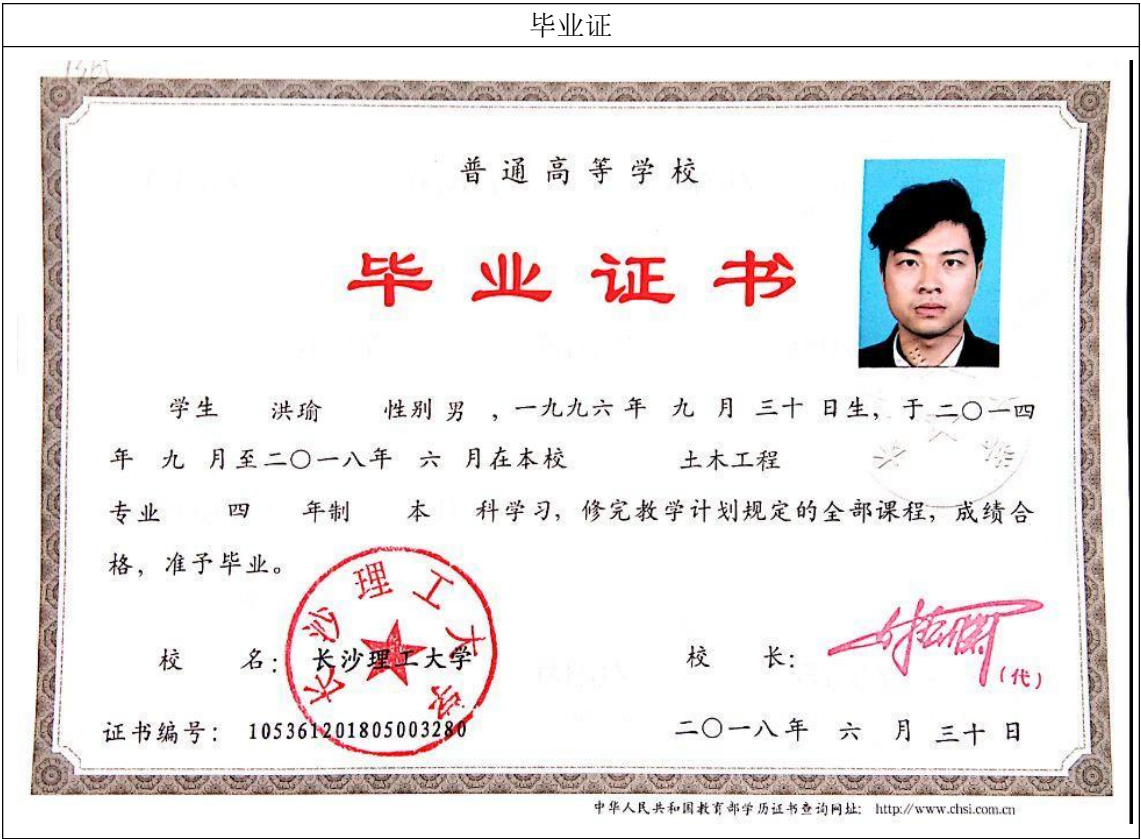 毕业证
普通高等学校
毕业证书
学生 洪瑜 性别 男 ，一九九六年 九 月 三十 日生，于二〇一四
年 九 月至二〇一八年 六 月在本校 土木工程
专业 四 年制 本 科学习，修完教学计划规定的全部课程，成绩合
格，准予毕业。
长沙理工大学
校 名：长沙理工大学 校 长： （代）
证书编号：105361201805003280 二〇一八年 六 月 三十 日
中华人民共和国教育部学历证书查询网址： http://www.chsi.com.cn